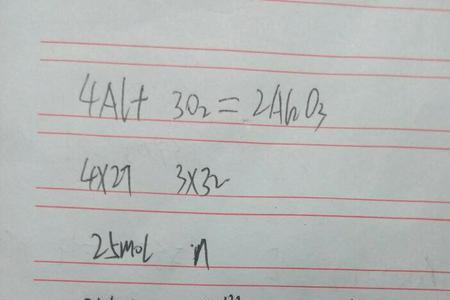 4Al+ 3O₂ = 2Al₂O₃
4×27 3×32
25mol n